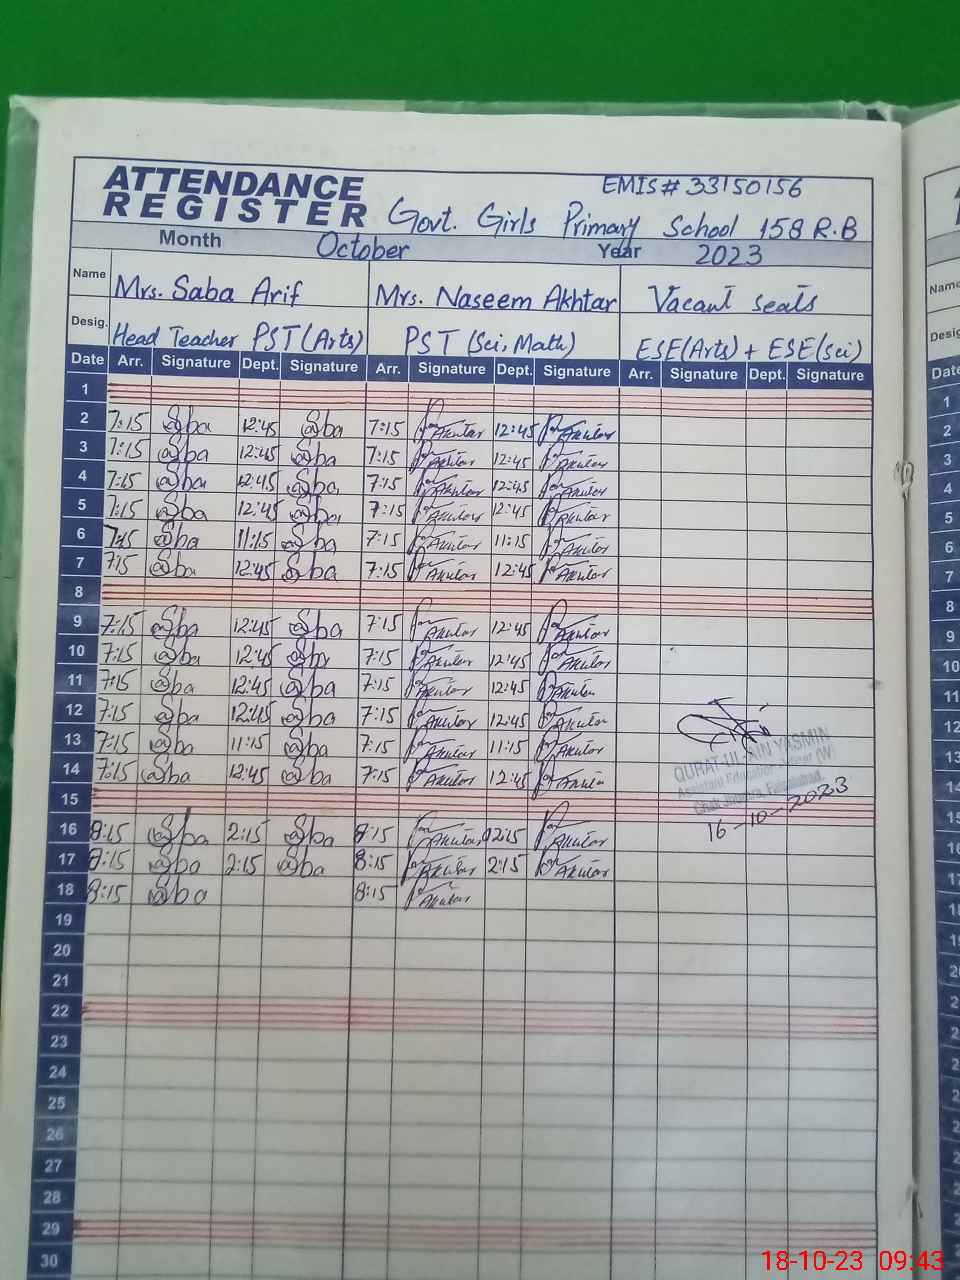 ATTENDANCE
REGISTER
EMIS# 33150156
Govt. Girls Primary School 158 R.B
Month October Year 2023
Name Mrs. Saba Arif Mrs. Naseem Akhtar Vacant seats
Desig. Head Teacher PST (Arts) PST (Sci, Math) ESE(Arts) + ESE(Sci)
Date Arr. Signature Dept. Signature Arr. Signature Dept. Signature Arr. Signature Dept. Signature
1
2 7:15 Saba 12:45 Saba 7:15 Akhtar 12:45 Akhtar
3 7:15 Saba 12:45 Saba 7:15 Akhtar 12:45 Akhtar
4 7:15 Saba 12:45 Saba 7:15 Akhtar 12:45 Akhtar
5 7:15 Saba 12:45 Saba 7:15 Akhtar 12:45 Akhtar
6 7:15 Saba 11:15 Saba 7:15 Akhtar 11:15 Akhtar
7 7:15 Saba 12:45 Saba 7:15 Akhtar 12:45 Akhtar
8
9 7:15 Saba 12:45 Saba 7:15 Akhtar 12:45 Akhtar
10 7:15 Saba 12:45 Saba 7:15 Akhtar 12:45 Akhtar
11 7:15 Saba 12:45 Saba 7:15 Akhtar 12:45 Akhtar
12 7:15 Saba 12:45 Saba 7:15 Akhtar 12:45 Akhtar
13 7:15 Saba 11:15 Saba 7:15 Akhtar 11:15 Akhtar
14 7:15 Saba 12:45 Saba 7:15 Akhtar 12:45 Akhtar
QURAT-UL-AIN YASMIN
Assistant Education Officer (W)
Chak Jhumra, Faisalabad.
16-10-2023
15
16 8:15 Saba 2:15 Saba 8:15 Akhtar 2:15 Akhtar
17 8:15 Saba 2:15 Saba 8:15 Akhtar 2:15 Akhtar
18 8:15 Saba 8:15 Akhtar
19
20
21
22
23
24
25
26
27
28
29
30
Name
Desig
Date
1
2
3
4
5
6
7
8
9
10
11
12
13
14
15
16
17
18-10-23 09:43